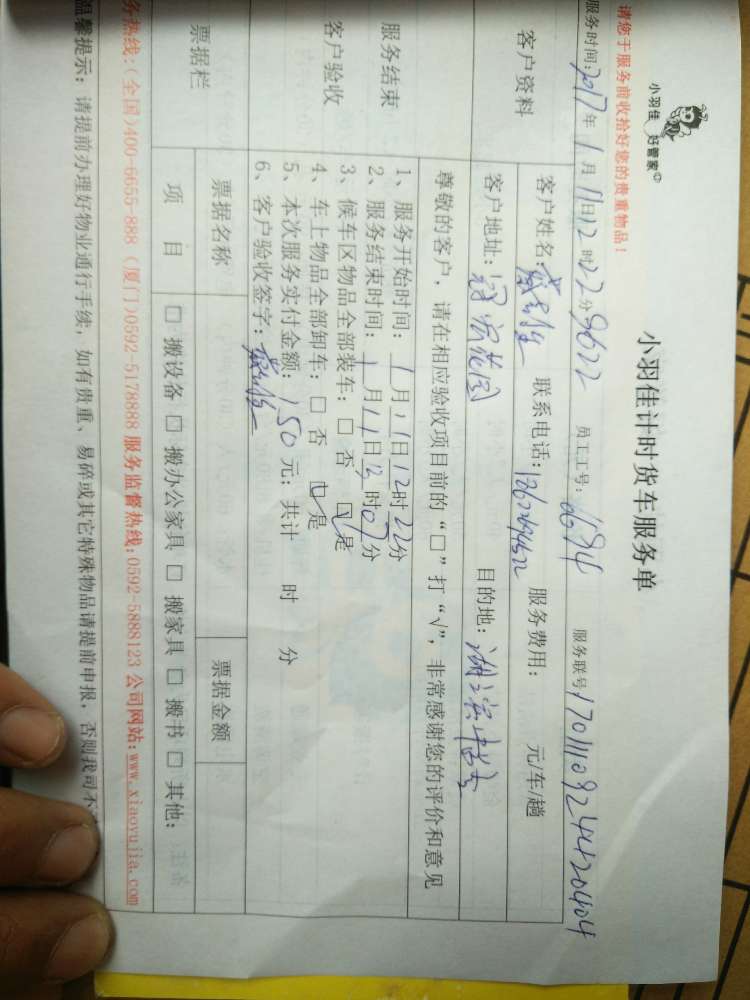 小羽佳 好管家
小羽佳计时货车服务单
请您于服务前收拾好您的贵重物品！
服务时间：2017年1月11日12时22分 9622 员工工号：1694 服务联号 17011109244420404
客户资料
客户姓名： 联系电话： 服务费用： 元/车/趟
客户地址： 花园 目的地：
尊敬的客户，请在相应验收项目前的“□”打“√”，非常感谢您的评价和意见
服务结束
客户验收
1、服务开始时间：1月11日12时22分
2、服务结束时间：1月11日 时07分
3、候车区物品全部装车：□ 否 ☑ 是
4、车上物品全部卸车：□ 否 ☑ 是
5、本次服务实付金额：150元；共计 时 分
6、客户验收签字：
票据栏
票据名称 票据金额
项 目 □ 搬设备 □ 搬办公家具 □ 搬家具 □ 搬书 □ 其他：
务热线：(全国)400-6655-888 (厦门)0592-5178888 服务监督热线：0592-5888123 公司网站：www.xiaoyujia.com
温馨提示：请提前办理好物业通行手续，如有贵重、易碎或其它特殊物品请提前申报，否则我司不